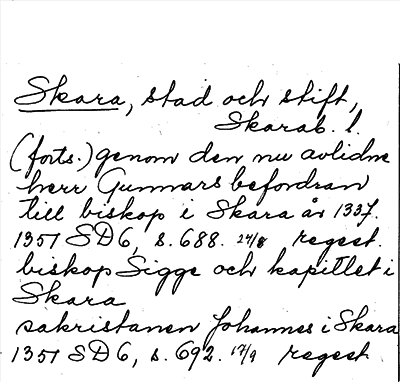 Skara, stad och stift,
Skarab. l.
(forts.) genom den nu avlidne
herr Gunnars befordran
till biskop i Skara år 1337.
1351 SD6, s. 688. 24/8 regest.
biskop Sigge och kapitlet i
Skara
sakristanen Johannes i Skara
1351 SD6, s. 692. 17/9 regest